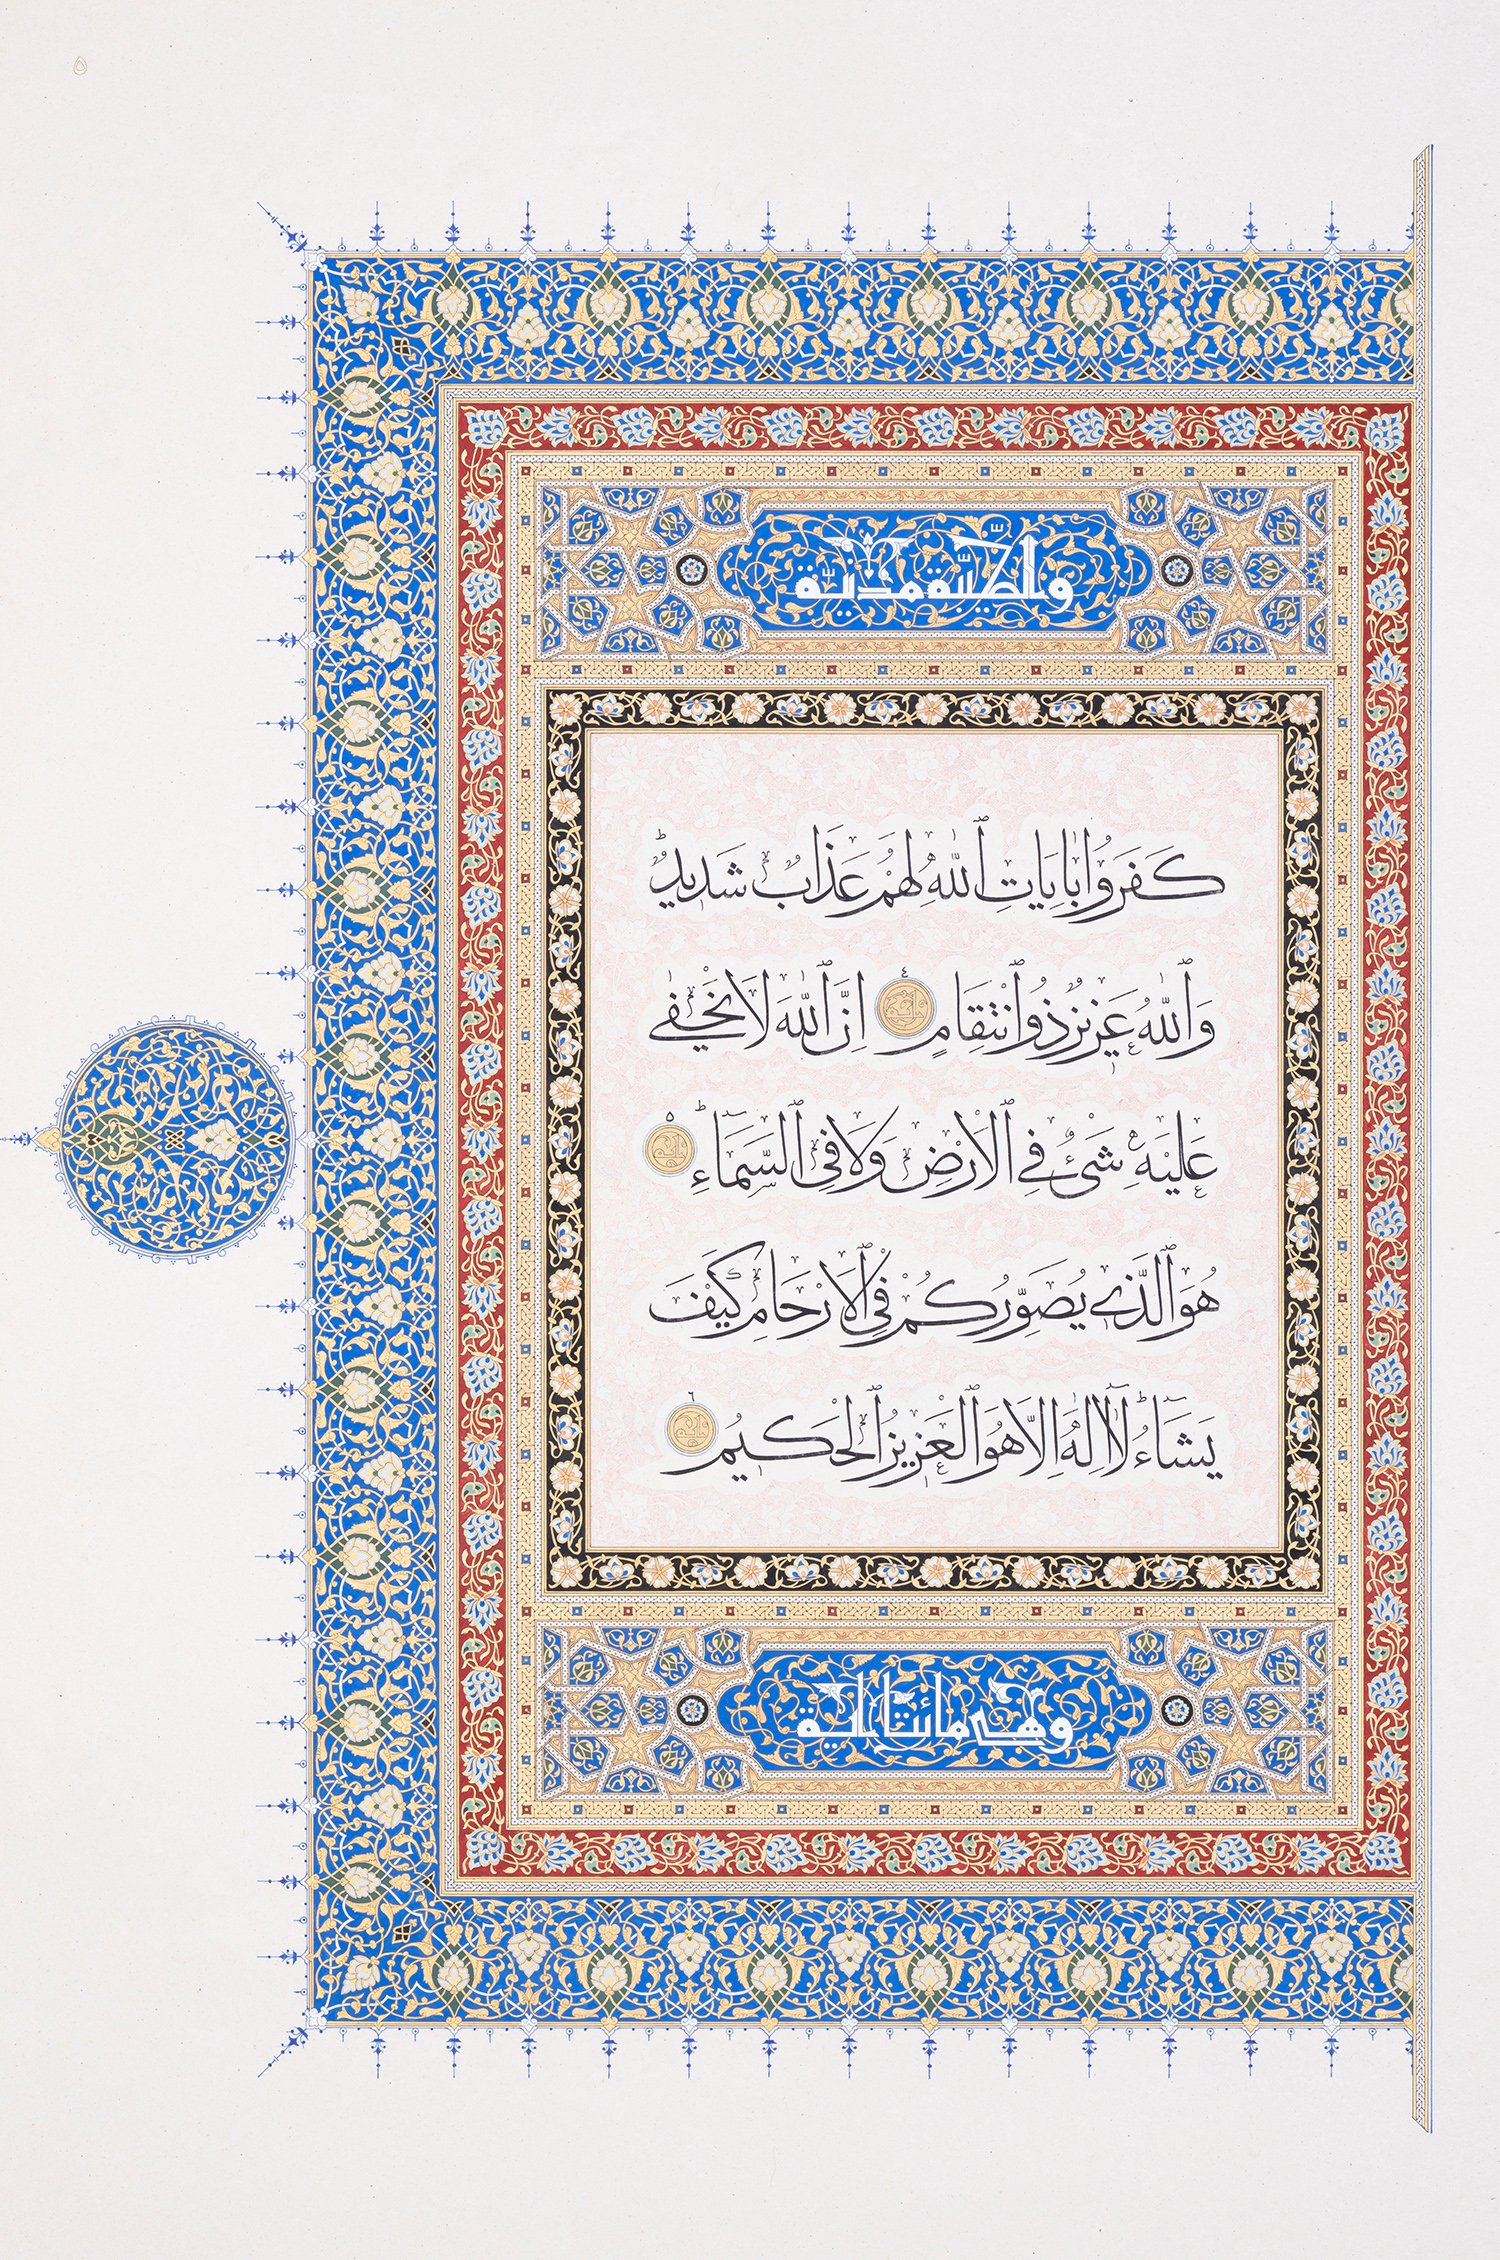 ٥
وا لطّيّبة مدنيّة
كَفَرُوا بِاٰيَاتِ ٱللّٰهِ لَهُمْ عَذَابٌ شَدِيدٌ ۗ
وَٱللّٰهُ عَزِيزٌ ذُو ٱنْتِقَامٍ ٤ اِنَّ ٱللّٰهَ لَا يَخْفٰى
عَلَيْهِ شَىْءٌ فِي ٱلْاَرْضِ وَلَا فِي ٱلسَّمَٓاءِ ۗ ٥
هُوَ ٱلَّذٖي يُصَوِّرُكُمْ فِي ٱلْاَرْحَامِ كَيْفَ
يَشَٓاءُ ۗ لَٓا اِلٰهَ اِلَّا هُوَ ٱلْعَزٖيزُ ٱلْحَكٖيمُ ٦
وهي مائتا اية